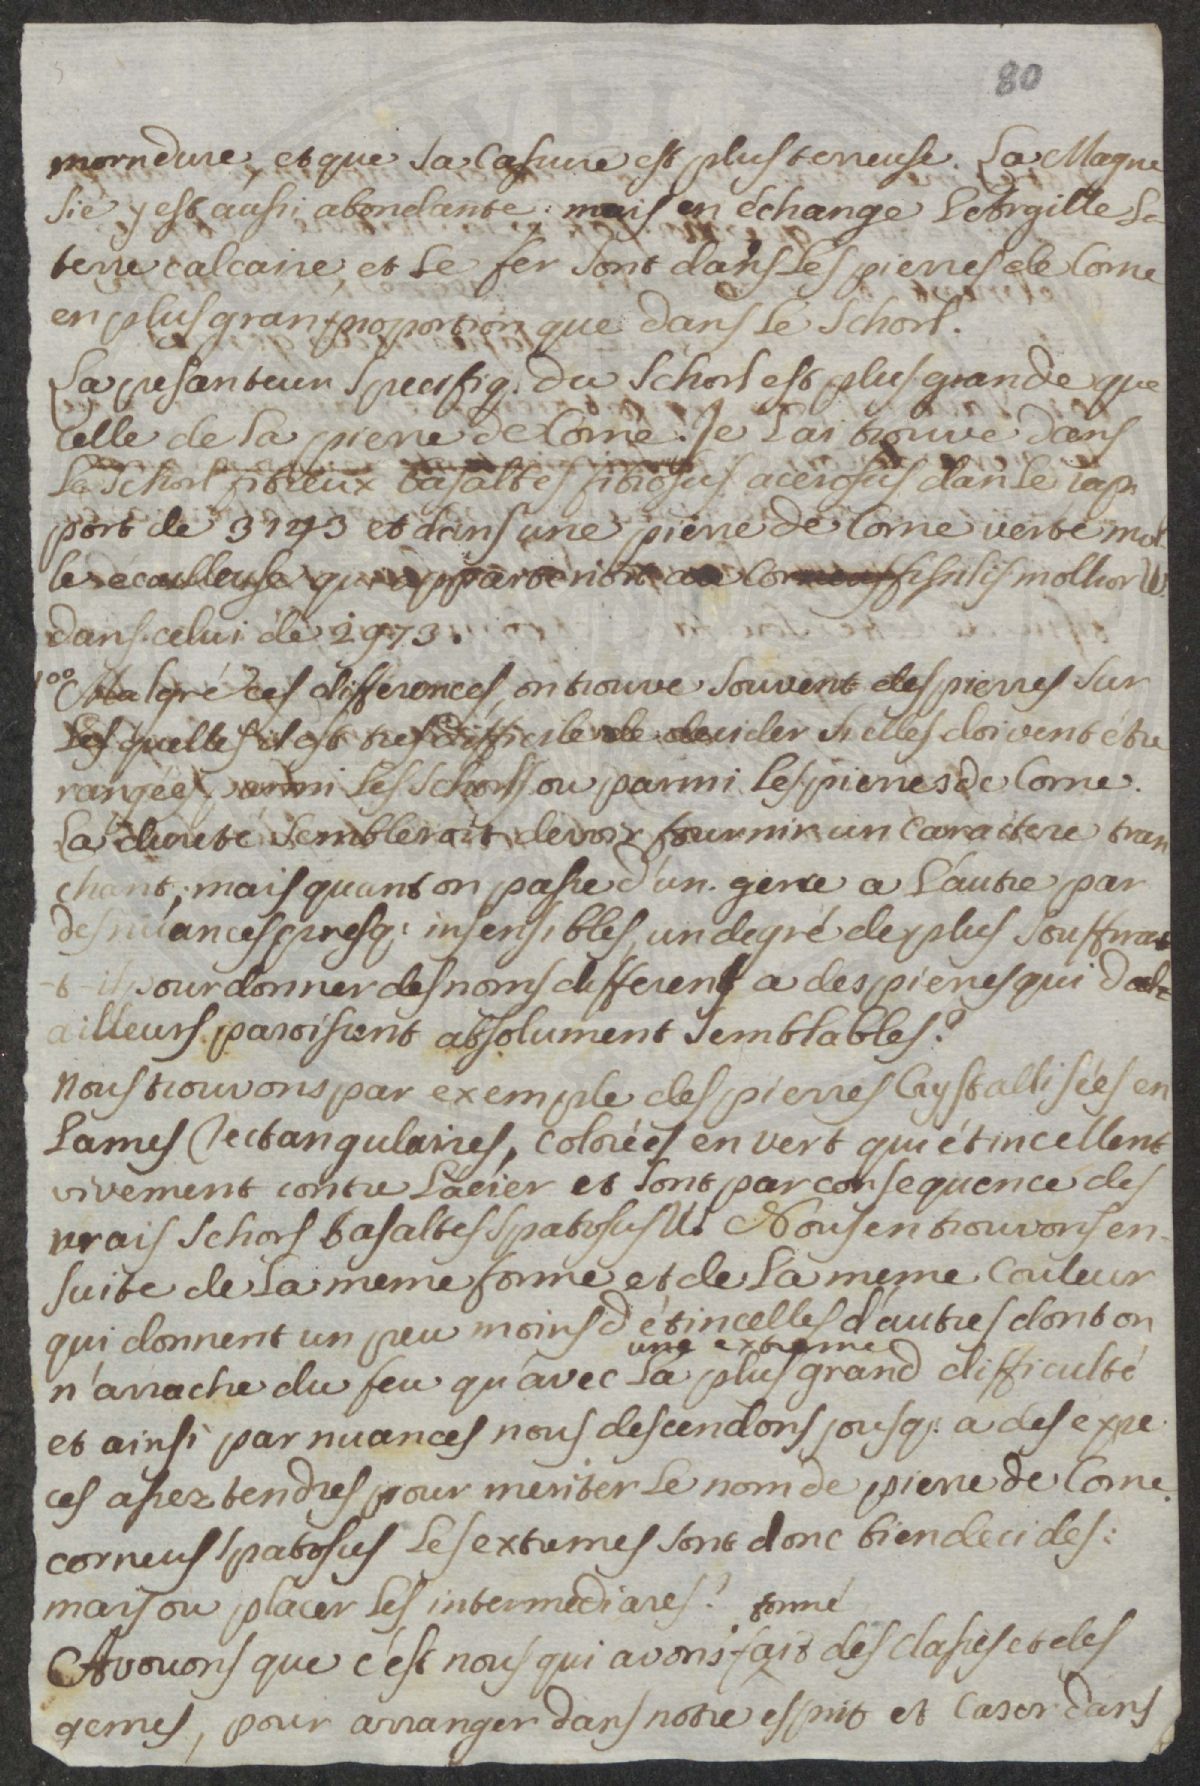 80
morndure, et que sa casure est plus terreuse. La Magne
sie y est aussi abondante: mais en échange L'Argille La
terre calcaire, et Le fer sont dans Les pierres de Corne
en plus gran proportion que dans Le Schorl.
La pesanteur Specifiq. du Schorl est plus grande que
celle de La pierre de Corne. Je L'ai trouve dans
Le Schorl fibreux basaltes fibrosus acerosus dan Le rap
port de 3123 et dans une pierre de Corne verte mol
le écailleuse qui appartenoit au Corneus fissilis mollior W.
dans celui de 2973.
100 Malgré ces differences, on trouve souvent des pierres sur
Les quelles il est tres difficile de decider si elles doivent être
rangées parmi Les Schorls ou parmi Les pierres de Corne.
La dureté sembleroit devoir fournir un caractere tran
chant; mais quant on passe d'un genre a L'autre par
des nuances presq: insensibles, un degré de plus souffrat
t-il pour donner des noms different a des pierres qui d'al
ailleurs paroissent absolument semblables?
Nous trouvons par exemple des pierres Crystallisées en
Lames rectangulaires, colorées en vert qui étincellent
vivement contre L'acier et sont par consequence des
vrais Schorl basaltes spatosus W. Nous en trouvons en-
suite de La meme forme et de La meme couleur
qui donnent un peu moins d'étincelles d'autres dont on
une extreme
n'arrache du feu qu'avec La plus grand difficulté
et ainsi par nuances nous descendons jousq: a des expe
ces assez tendres pour meriter Le nom de pierre de Corne
corneus spatosus Les extremes sont donc bien decides:
mais ou placer Les intermediares?
formé
Avouons que c'est nous qui avons fait des classes et des
genres, pour arranger dans notre esprit et caser dans